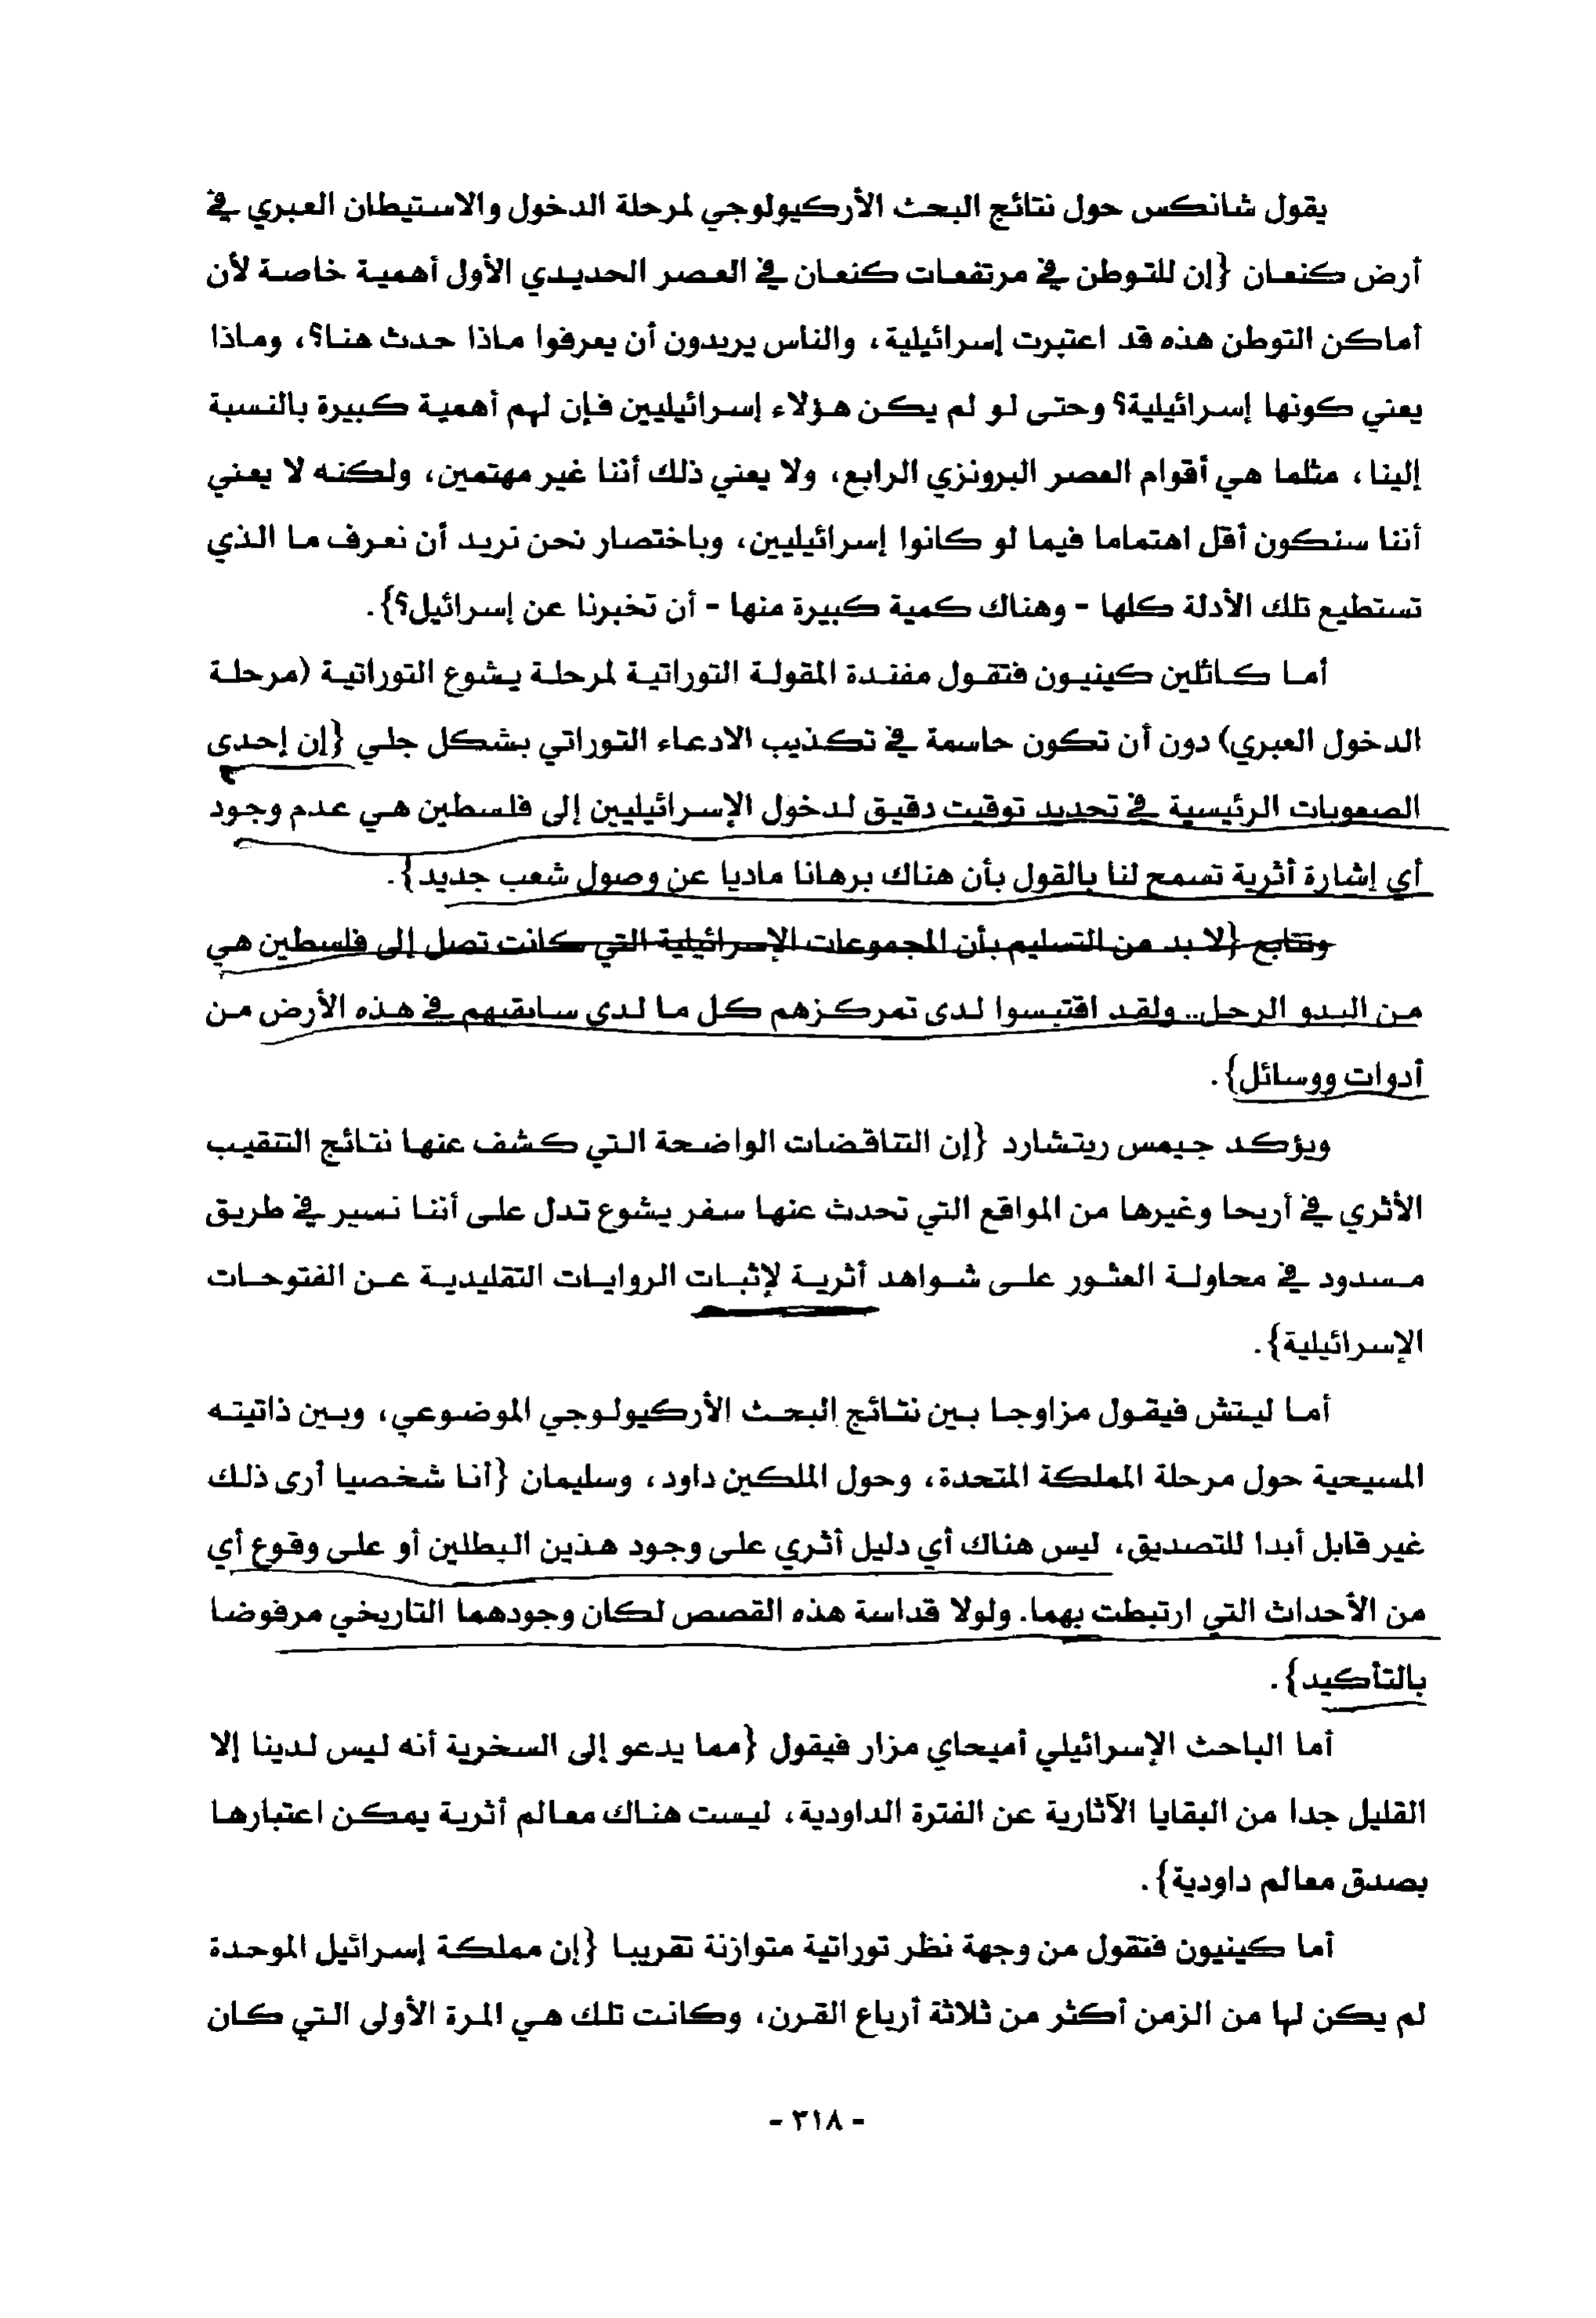 يقول شانكس حول نتائج البحث الأركيولوجي لمرحلة الدخول والاستيطان العبري في
أرض كنعان {إن للتوطن في مرتفعات كنعان في العصر الحديدي الأول أهمية خاصة لأن
أماكن التوطن هذه قد اعتبرت إسرائيلية، والناس يريدون أن يعرفوا ماذا حدث هنا؟، وماذا
يعني كونها إسرائيلية؟ وحتى لو لم يكن هؤلاء إسرائيليين فإن لهم أهمية كبيرة بالنسبة
إلينا، مثلما هي أقوام العصر البرونزي الرابع، ولا يعني ذلك أننا غير مهتمين، ولكنه لا يعني
أننا سنكون أقل اهتماما فيما لو كانوا إسرائيليين، وباختصار نحن نريد أن نعرف ما الذي
تستطيع تلك الأدلة كلها - وهناك كمية كبيرة منها - أن تخبرنا عن إسرائيل؟}.
أما كاثلين كينيون فتقول مفندة المقولة التوراتية لمرحلة يشوع التوراتية (مرحلة
الدخول العبري) دون أن تكون حاسمة في تكذيب الادعاء التوراتي بشكل جلي {إن إحدى
الصعوبات الرئيسية في تحديد توقيت دقيق لدخول الإسرائيليين إلى فلسطين هي عدم وجود
أي إشارة أثرية تسمح لنا بالقول بأن هناك برهانا ماديا عن وصول شعب جديد}.
وتتابع {لا بد من التسليم بأن المجموعات الإسرائيلية التي كانت تصل إلى فلسطين هي
من البدو الرحل.. ولقد اقتبسوا لدى تمركزهم كل ما لدى سابقيهم في هذه الأرض من
أدوات ووسائل}.
ويؤكد جيمس ريتشارد {إن التناقضات الواضحة التي كشف عنها نتائج التنقيب
الأثري في أريحا وغيرها من المواقع التي تحدث عنها سفر يشوع تدل على أننا نسير في طريق
مسدود في محاولة العثور على شواهد أثرية لإثبات الروايات التقليدية عن الفتوحات
الإسرائيلية}.
أما ليتش فيقول مزاوجا بين نتائج البحث الأركيولوجي الموضوعي، وبين ذاتيته
المسيحية حول مرحلة المملكة المتحدة، وحول الملكين داود، وسليمان {أنا شخصيا أرى ذلك
غير قابل أبدا للتصديق، ليس هناك أي دليل أثري على وجود هذين البطلين أو على وقوع أي
من الأحداث التي ارتبطت بهما. ولولا قداسة هذه القصص لكان وجودهما التاريخي مرفوضا
بالتأكيد}.
أما الباحث الإسرائيلي أميحاي مزار فيقول {مما يدعو إلى السخرية أنه ليس لدينا إلا
القليل جدا من البقايا الآثارية عن الفترة الداودية، ليست هناك معالم أثرية يمكن اعتبارها
بصدق معالم داودية}.
أما كينيون فتقول من وجهة نظر توراتية متوازنة تقريبا {إن مملكة إسرائيل الموحدة
لم يكن لها من الزمن أكثر من ثلاثة أرباع القرن، وكانت تلك هي المرة الأولى التي كان
- ٣١٨ -